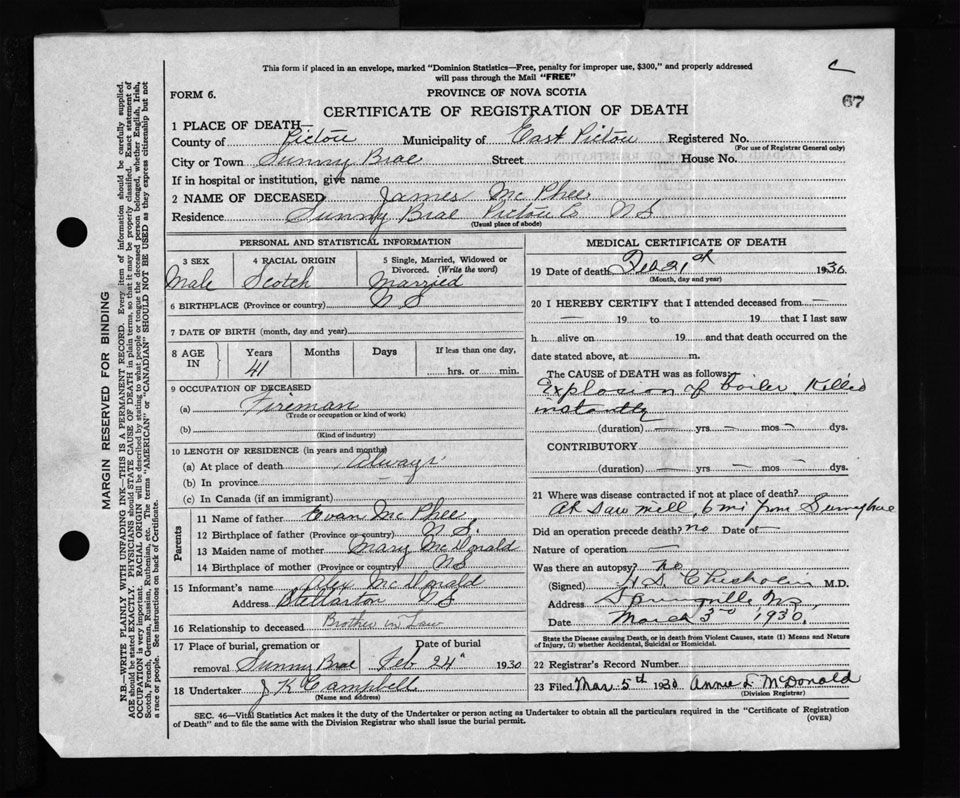 This form if placed in an envelope, marked "Dominion Statistics—Free, penalty for improper use, $300," and properly addressed
will pass through the Mail "FREE"
C
67
FORM 6.
PROVINCE OF NOVA SCOTIA
CERTIFICATE OF REGISTRATION OF DEATH
1 PLACE OF DEATH—
County of Pictou Municipality of East Pictou Registered No.
(For use of Registrar General only)
City or Town Sunny Brae Street House No.
If in hospital or institution, give name
2 NAME OF DECEASED James McPhee
Residence Sunny Brae Pictou Co NS
(Usual place of abode)
PERSONAL AND STATISTICAL INFORMATION
3 SEX 4 RACIAL ORIGIN 5 Single, Married, Widowed or
Divorced. (Write the word)
Male Scotch Married
6 BIRTHPLACE (Province or country) N S
7 DATE OF BIRTH (month, day and year)
8 AGE IN Years Months Days If less than one day,
41 hrs. or min.
9 OCCUPATION OF DECEASED
(a) Fireman
(Trade or occupation or kind of work)
(b)
(Kind of industry)
10 LENGTH OF RESIDENCE (in years and months)
(a) At place of death Always
(b) In province — —
(c) In Canada (if an immigrant)
Parents
11 Name of father Evan McPhee
12 Birthplace of father (Province or country) N S.
13 Maiden name of mother Mary McDonald
14 Birthplace of mother (Province or country) NS
15 Informant's name Alex McDonald
Address Stellarton NS
16 Relationship to deceased Brother in Law
17 Place of burial, cremation or Date of burial
removal Sunny Brae Feb 24th 1930
18 Undertaker J K Campbell
(Name and address)
MEDICAL CERTIFICATE OF DEATH
19 Date of death Feb 21st 1930
(Month, day and year)
20 I HEREBY CERTIFY that I attended deceased from —
— 19 to 19 that I last saw
h alive on 19 and that death occurred on the
date stated above, at m.
The CAUSE OF DEATH was as follows:
Explosion of boiler. Killed
instantly
(duration) — yrs — mos — dys.
CONTRIBUTORY
(duration) — yrs — mos — dys.
21 Where was disease contracted if not at place of death?
At Saw mill, 6 mi from Sunnybrae
Did an operation precede death? no Date of —
Nature of operation —
Was there an autopsy? no
(Signed) H D Chisholm M.D.
Address Springville N.S.
Date March 3rd 1930.
State the Disease causing Death, or in death from Violent Causes, state (1) Means and Nature
of Injury, (2) whether Accidental, Suicidal or Homicidal.
22 Registrar's Record Number
23 Filed Mar. 5th 1930 Annie L McDonald
(Division Registrar)
SEC. 46—Vital Statistics Act makes it the duty of the Undertaker or person acting as Undertaker to obtain all the particulars required in the "Certificate of Registration
of Death" and to file the same with the Division Registrar who shall issue the burial permit.
(OVER)
MARGIN RESERVED FOR BINDING
N.B.—WRITE PLAINLY WITH UNFADING INK—THIS IS A PERMANENT RECORD. Every item of information should be carefully supplied.
AGE should be stated EXACTLY. PHYSICIANS should STATE CAUSE OF DEATH in plain terms, so that it may be properly classified. Exact statement of
OCCUPATION is very important. RACIAL ORIGIN will be described by stating to what people or tongue the deceased person belonged, whether English, Irish,
Scotch, French, German, Russian, Ruthenian, etc. The terms "AMERICAN" or "CANADIAN" SHOULD NOT BE USED as they express citizenship but not
a race or people. See instructions on back of Certificate.